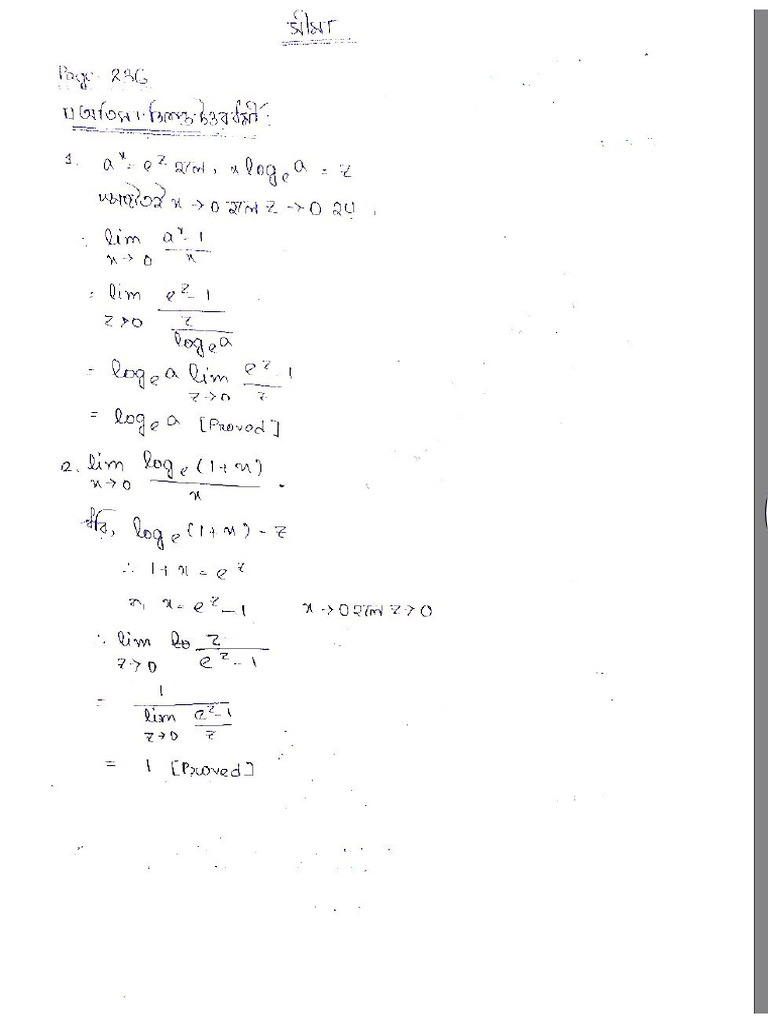 সীমা
Page 236
অতিসংক্ষিপ্ত উত্তরধর্মী :
1. a^x = e^z হলে, x log_e a = z
x → 0 হলে z → 0 হয়।
∴ lim x→0 (a^x - 1)/x
= lim z→0 (e^z - 1)/(z/log_e a)
= log_e a lim z→0 (e^z - 1)/z
= log_e a [Proved]
2. lim x→0 log_e (1+x)/x .
ধরি, log_e (1+x) = z
∴ 1+x = e^z
বা, x = e^z - 1 x → 0 হলে z → 0
∴ lim z→0 z/(e^z - 1)
= 1/(lim z→0 (e^z - 1)/z)
= 1 [Proved]